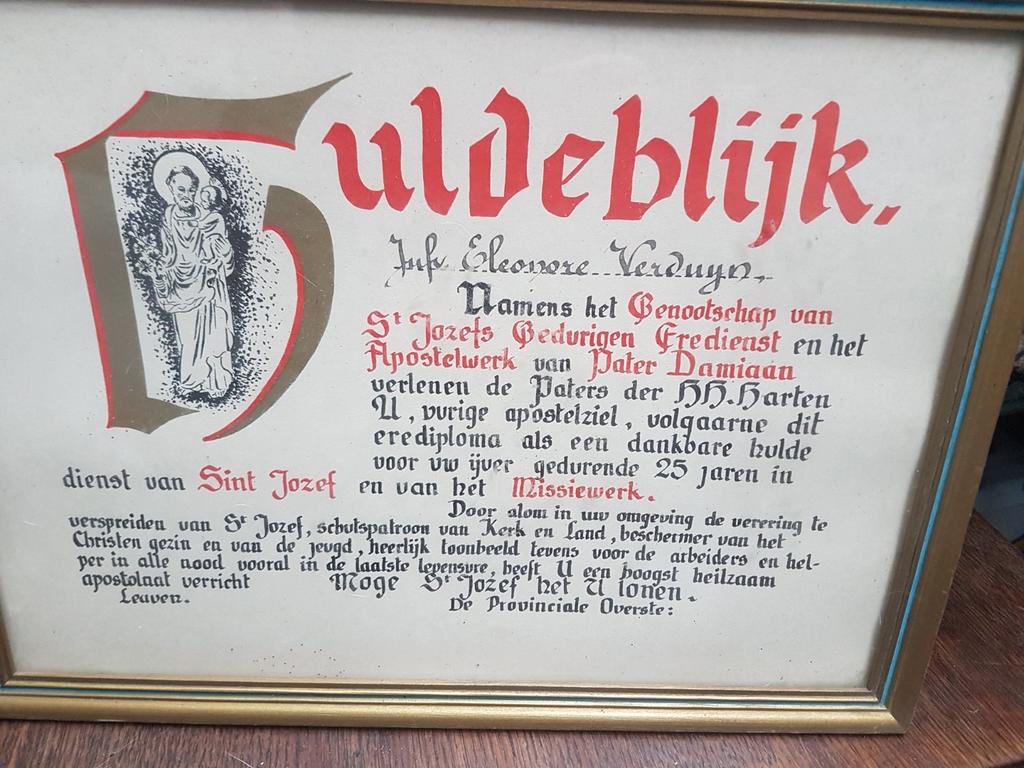 Huldeblijk.
Jufr Eleonore Verduyn.
Namens het Genootschap van
St Jozefs Gedurigen Eredienst en het
Apostelwerk van Pater Damiaan
verlenen de Paters der HH. Harten
U, vurige apostelziel, volgaarne dit
erediploma als een dankbare hulde
voor uw ijver gedurende 25 jaren in
dienst van Sint Jozef en van het Missiewerk.
Door alom in uw omgeving de verering te
verspreiden van St Jozef, schutspatroon van Kerk en Land, beschermer van het
Christen gezin en van de jeugd, heerlijk toonbeeld tevens voor de arbeiders en hel-
per in alle nood vooral in de laatste levensure, heeft U een hoogst heilzaam
apostolaat verricht Moge St Jozef het U lonen.
Leuven. De Provinciale Overste: